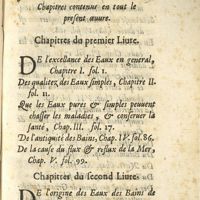 Chapitres contenue en tout le
present œuure.
Chapitres du premier Liure.
DE l'excellance des Eaux en general,
Chapitre I. fol. 1.
Des qualitez des Eaux simples, Chapitre II.
fol. 11.
Que les Eaux pures & simples peuuent
chasser les maladies, & conseruer la
santé, Chap. III. fol. 17.
De l'antiquité des Bains, Chap. IV. fol. 86.
De la cause du flux & reflux de la Mer,
Chap. V. fol. 99.
Chapitres du second Liure.
DE l'origine des Eaux des Bains de